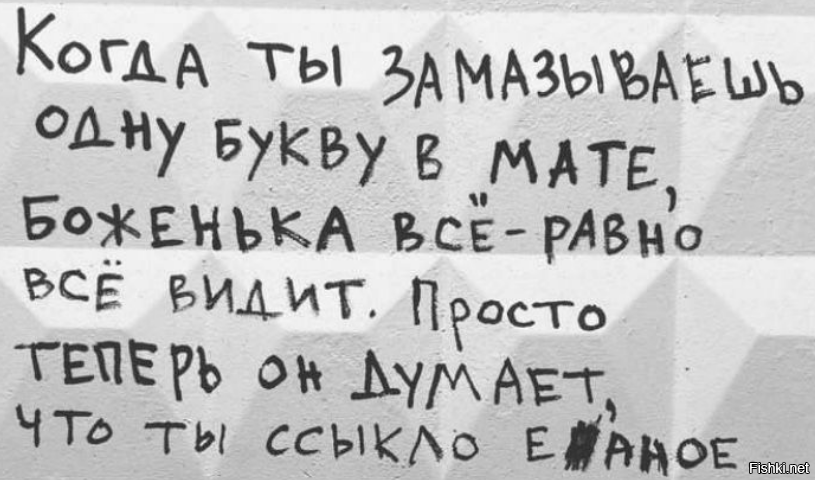 Когда ты замазываешь
одну букву в мате,
Боженька всё-равно
всё видит. Просто
теперь он думает,
что ты ссыкло е аное
Fishki.net